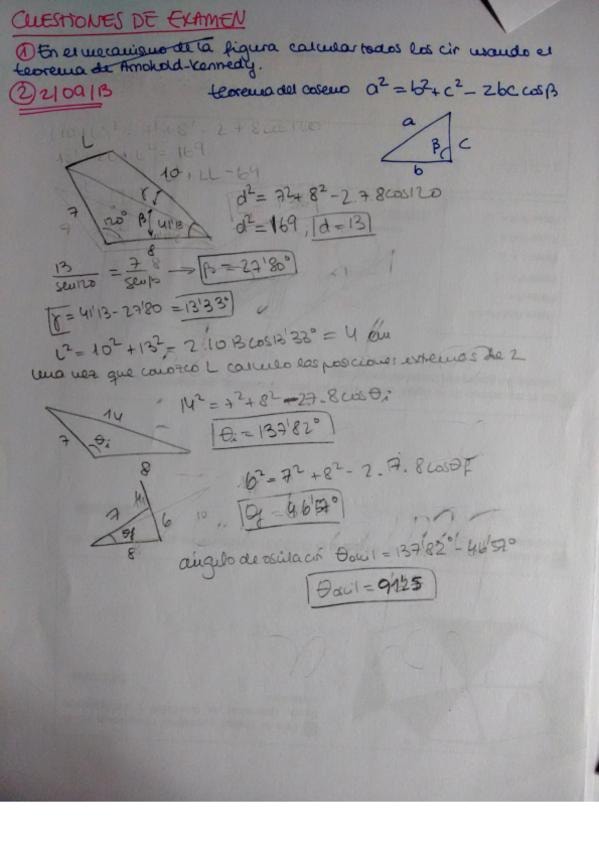 CUESTIONES DE EXAMEN
① En el mecanismo de la figura calcular todos los cir usando el
teorema de Arnohold-Kennedy.
② 2/09/13 teorema del coseno a² = b² + c² - 2bc cosβ
a
β c
b
L
10
7
γ
120° β 41'13
8
d² = 7² + 8² - 2 7 8 cos120
d² = 169, d = 13
13/sen120 = 7/senβ → β = 27'80°
γ = 41'13 - 27'80 = 13'33°
L² = 10² + 13² - 2·10·13 cos13'33° = 4 cm
una vez que conozco L calculo las posiciones extremas de 2
14
7 θi
8
14² = 7² + 8² - 2 7·8 cosθi
θi = 137'82°
7 6
θf
8
6² = 7² + 8² - 2·7·8 cosθf
θf = 46'57°
ángulo de oscilación θoscil = 137'82° - 46'57°
θoscil = 91'25